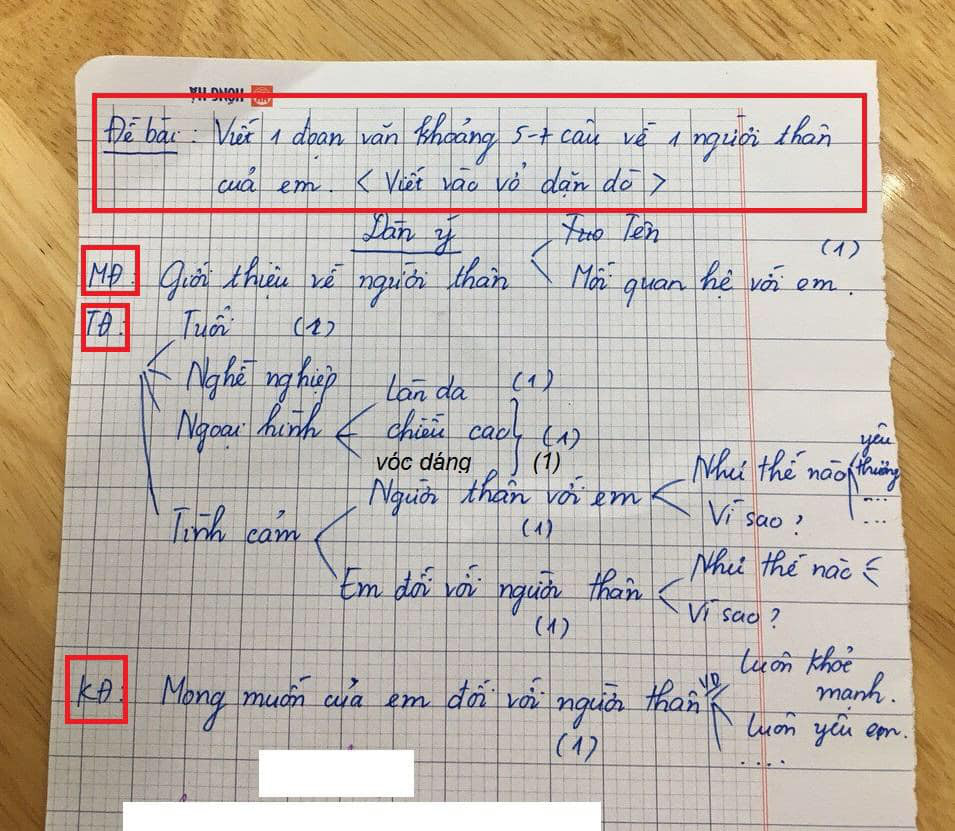 HỒNG HÀ
Đề bài: Viết 1 đoạn văn khoảng 5-7 câu về 1 người thân
của em. < Viết vào vở dặn dò >
Dàn ý
Tên
MĐ: Giới thiệu về người thân < Mối quan hệ với em. (1)
TĐ: Tuổi (1)
Nghề nghiệp
Làn da (1)
Ngoại hình < chiều cao } (1)
vóc dáng (1)
Người thân với em < Như thế nào ( yêu thương ...
Vì sao? ...
(1)
Tình cảm <
Em đối với người thân < Như thế nào <
Vì sao?
(1)
KĐ: Mong muốn của em đối với người thân VD
luôn khoẻ
mạnh.
luôn yêu em.
....
(1)